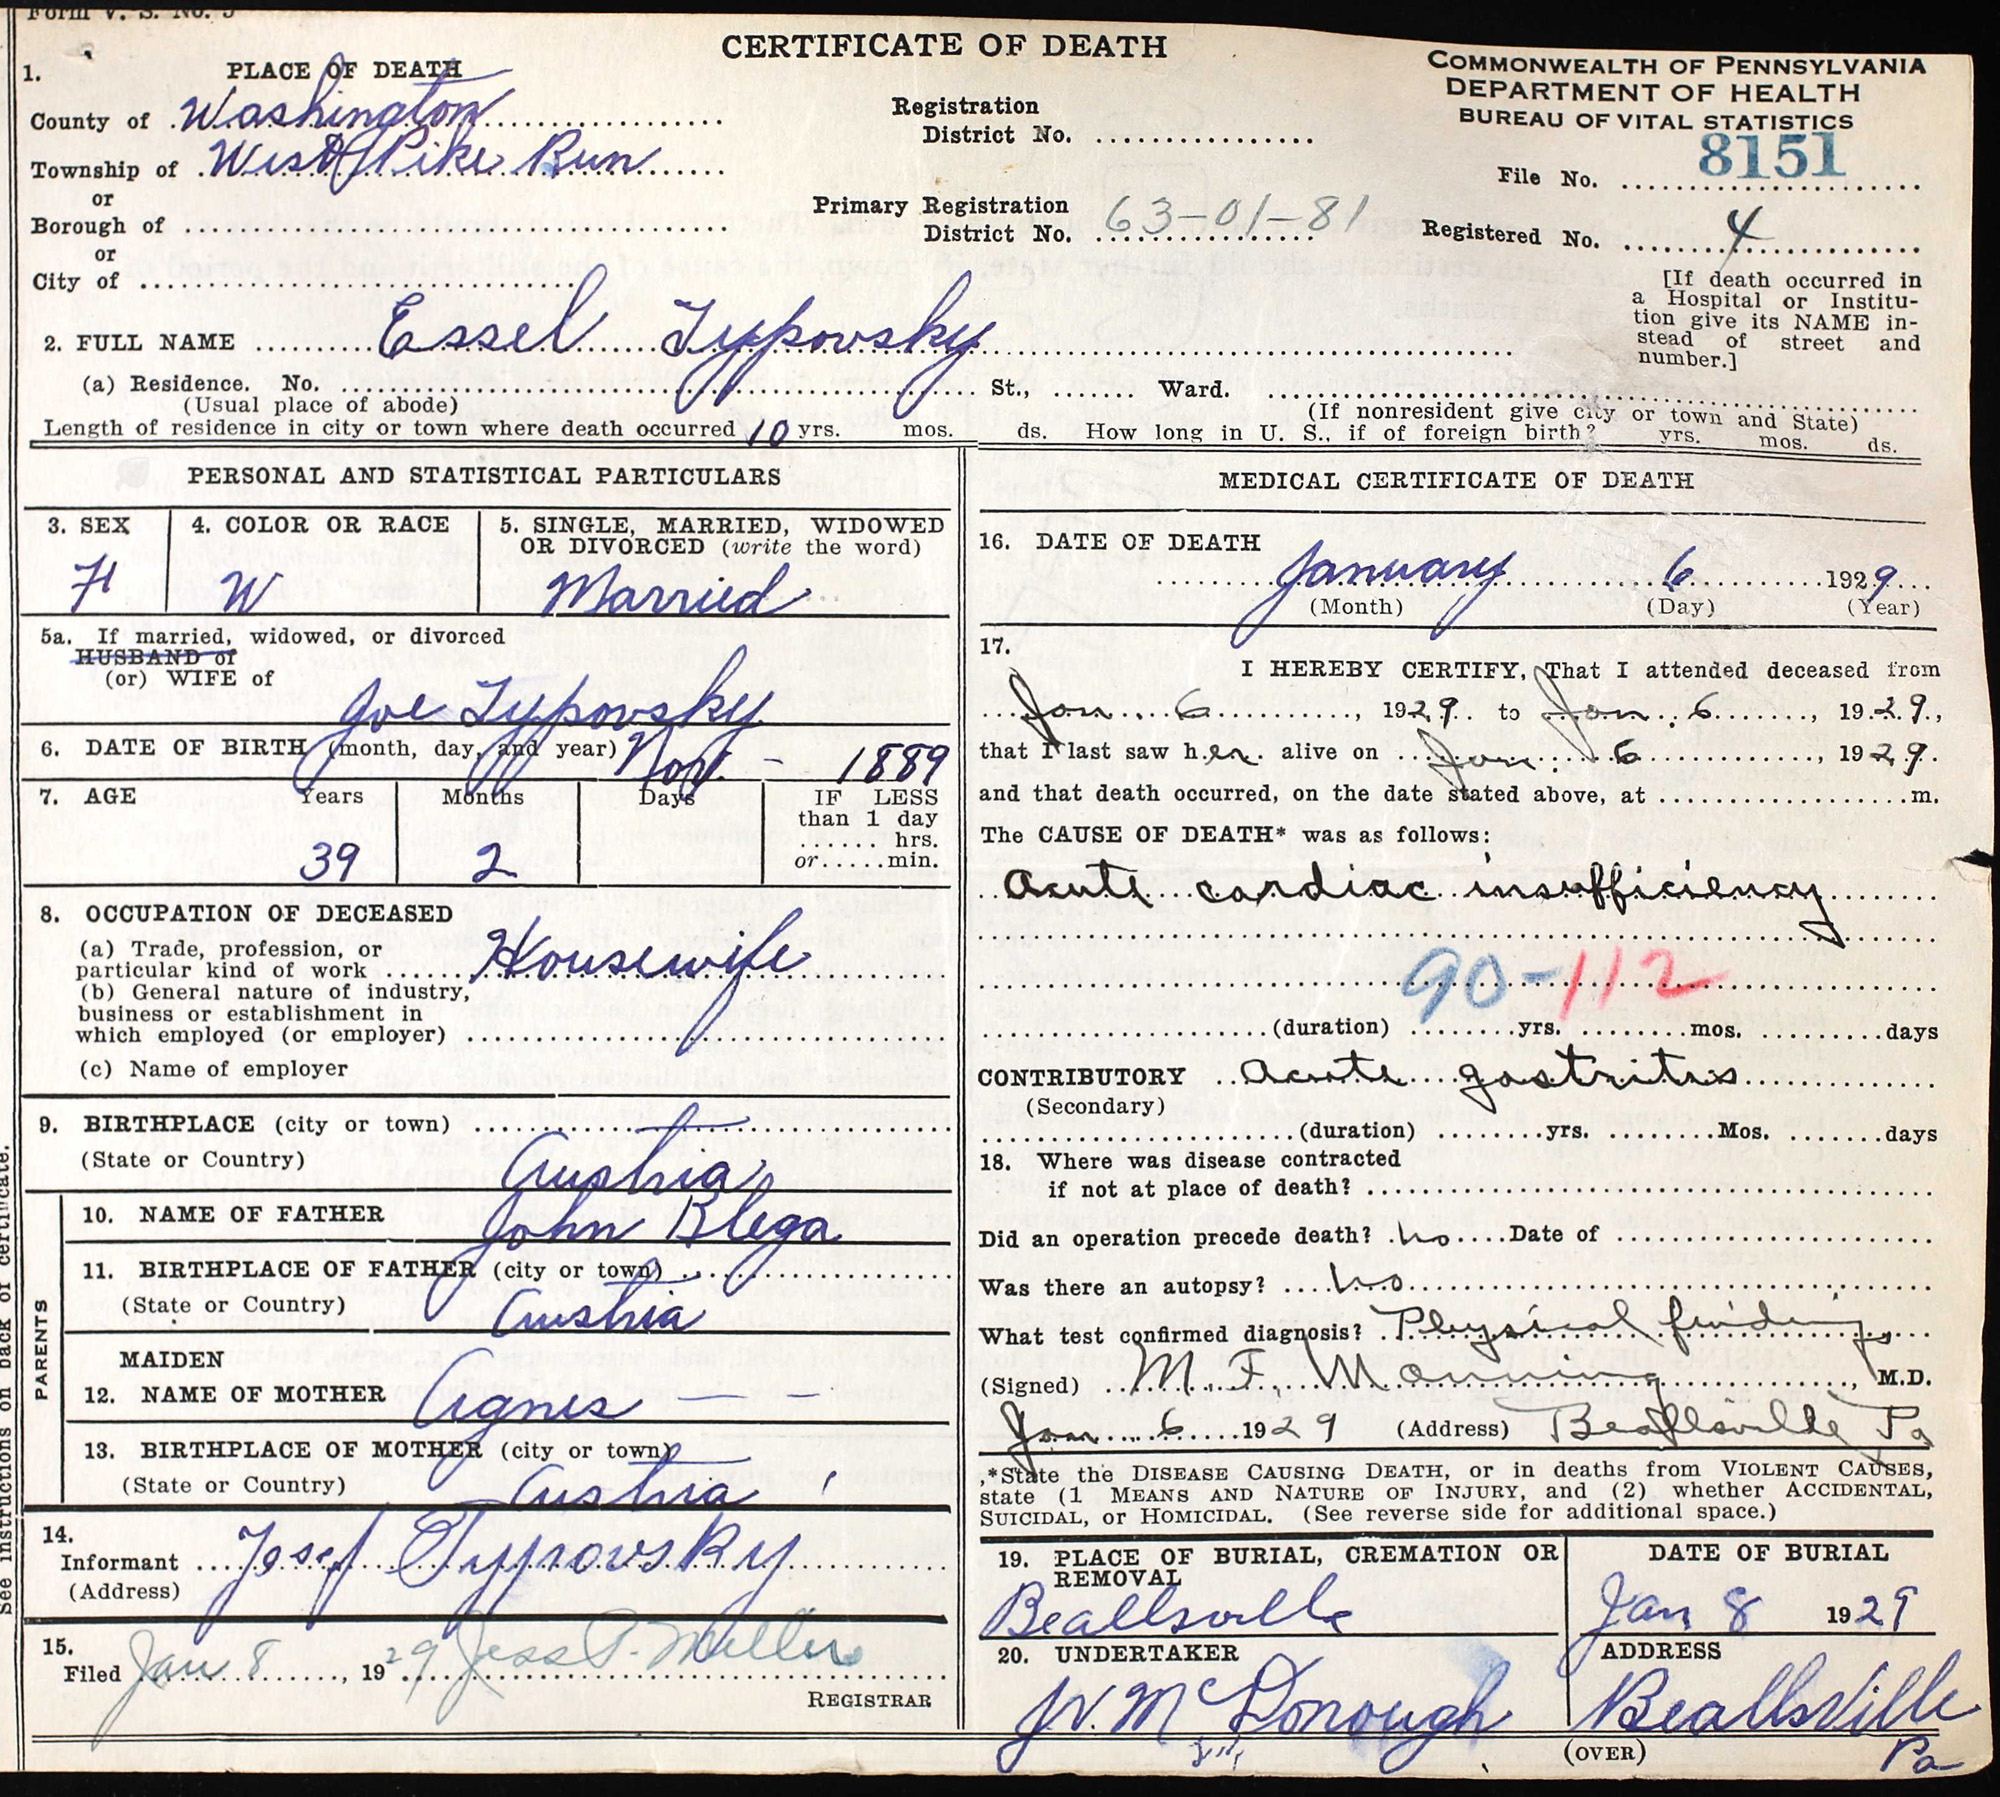 Form V. S. No. 5
CERTIFICATE OF DEATH
COMMONWEALTH OF PENNSYLVANIA
DEPARTMENT OF HEALTH
BUREAU OF VITAL STATISTICS
1. PLACE OF DEATH
County of Washington
Township of West Pike Run
or
Borough of
or
City of
Registration
District No.
Primary Registration
District No. 63-01-81
File No. 8151
Registered No. 4
[If death occurred in
a Hospital or Institu-
tion give its NAME in-
stead of street and
number.]
2. FULL NAME Essel Typovsky
(a) Residence. No. St., Ward.
(Usual place of abode) (If nonresident give city or town and State)
Length of residence in city or town where death occurred 10 yrs. mos. ds. How long in U. S., if of foreign birth? yrs. mos. ds.
PERSONAL AND STATISTICAL PARTICULARS
3. SEX
F
4. COLOR OR RACE
W
5. SINGLE, MARRIED, WIDOWED
OR DIVORCED (write the word)
Married
5a. If married, widowed, or divorced
HUSBAND of
(or) WIFE of
Joe Typovsky
6. DATE OF BIRTH (month, day, and year) Nov. - 1889
7. AGE Years Months Days IF LESS
than 1 day
hrs.
or min.
39 2
8. OCCUPATION OF DECEASED
(a) Trade, profession, or
particular kind of work Housewife
(b) General nature of industry,
business or establishment in
which employed (or employer)
(c) Name of employer
9. BIRTHPLACE (city or town)
(State or Country) Austria
PARENTS
10. NAME OF FATHER John Blega
11. BIRTHPLACE OF FATHER (city or town)
(State or Country) Austria
MAIDEN
12. NAME OF MOTHER Agnes — —
13. BIRTHPLACE OF MOTHER (city or town)
(State or Country) Austria
14.
Informant Josef Typovsky
(Address)
15.
Filed Jan 8, 1929 Jess P. Miller
REGISTRAR
See instructions on back of certificate.
MEDICAL CERTIFICATE OF DEATH
16. DATE OF DEATH
January 6 1929
(Month) (Day) (Year)
17.
I HEREBY CERTIFY, That I attended deceased from
Jan. 6, 1929 to Jan. 6, 1929,
that I last saw her alive on Jan 6, 1929.
and that death occurred, on the date stated above, at m.
The CAUSE OF DEATH* was as follows:
Acute cardiac insufficiency
90-112
(duration) yrs. mos. days
CONTRIBUTORY Acute gastritis
(Secondary)
(duration) yrs. Mos. days
18. Where was disease contracted
if not at place of death?
Did an operation precede death? No Date of
Was there an autopsy? No
What test confirmed diagnosis? Physical findings
(Signed) M. F. Manning, M.D.
Jan. 6 1929 (Address) Beallsville Pa
*State the DISEASE CAUSING DEATH, or in deaths from VIOLENT CAUSES,
state (1 MEANS AND NATURE OF INJURY, and (2) whether ACCIDENTAL,
SUICIDAL, or HOMICIDAL. (See reverse side for additional space.)
19. PLACE OF BURIAL, CREMATION OR
REMOVAL
Beallsville
DATE OF BURIAL
Jan 8 1929
20. UNDERTAKER
J.V. McDonough
ADDRESS
Beallsville
Pa
(OVER)